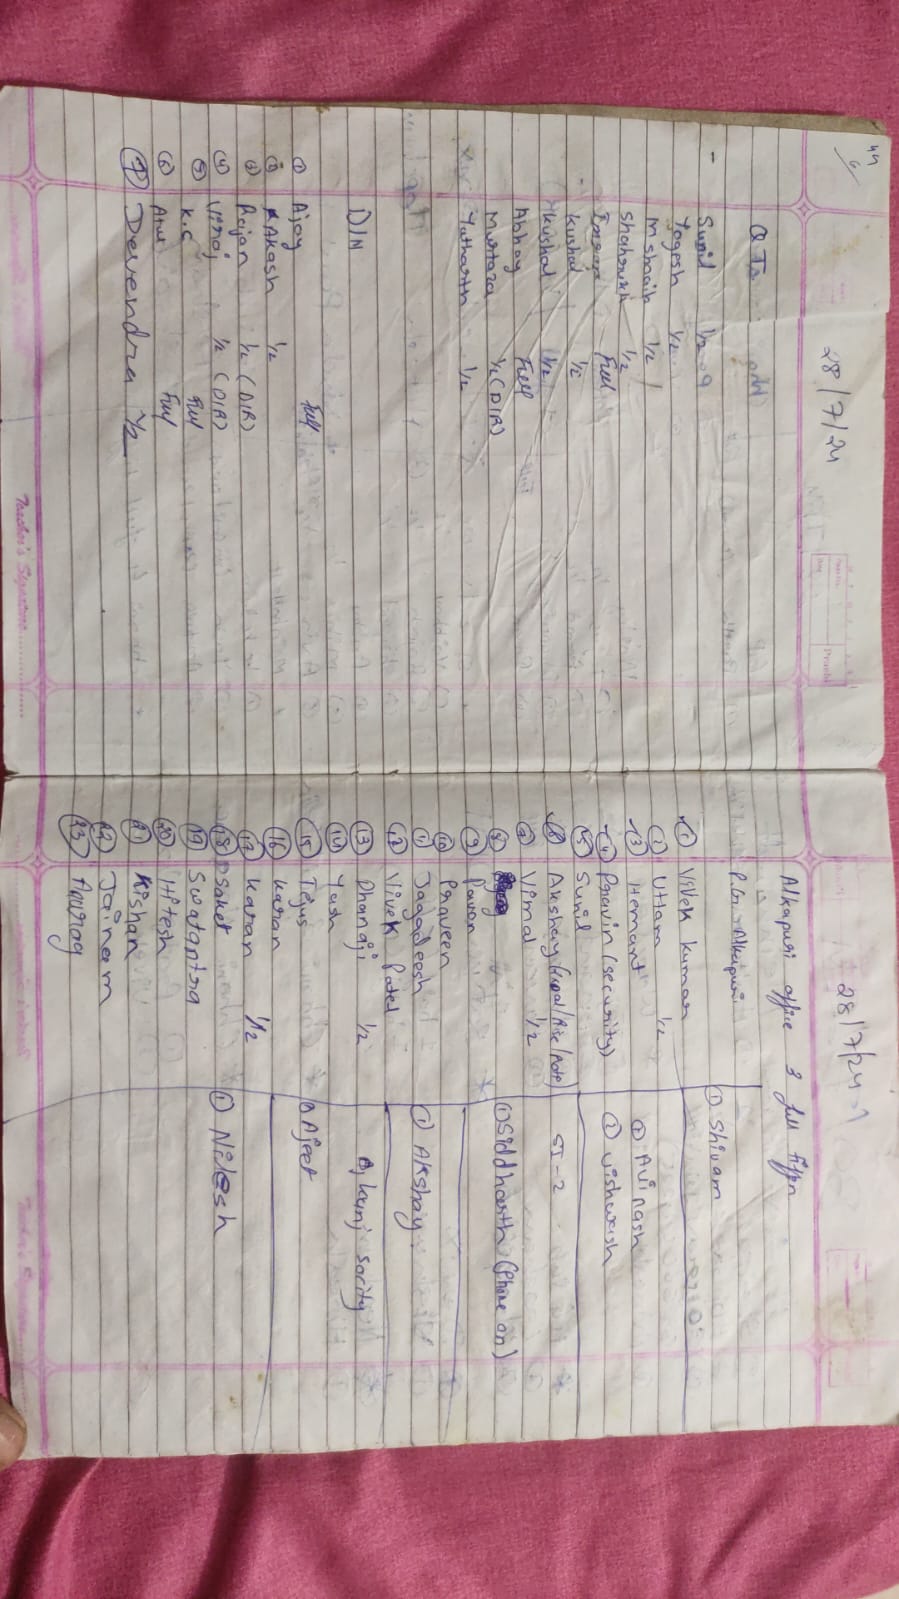 28/7/24
Sunil 1/2
Yogesh 1/2
M shaaik 1/2
Shahrukh 1/2
Imran Full
Kushal 1/2
Kushal 1/2
Abhay Full
Murtaza 1/2 (DIR)
Yatharth 1/2
DIN
1 Ajay Full
2 Akash 1/2
3 Rajan 1/2 (DIR)
4 Viraj 1/2 (DIR)
5 K.C Full
6 Atul Full
7 Devendra 1/2
Teacher's Signature
28/7/24
Alkapuri office 3 full Tiffin
P.G. Alkapuri
1 Vivek Kumar
2 Uttam 1/2
3 Hemant
4 Pravin (security)
5 Sunil
6 Akshay
7 Vimal 1/2
8
9 Pavan
10 Praveen
11 Jagadeesh
12 Vivek Patel
13 Dhanaji 1/2
14 Yash
15 Tejus
16 Karan
17 Karan 1/2
18 Saket
19 Swatantra
20 Hitesh
21 Kishan
22 Jainam
23 Anurag
1 Shivam
1 Avinash
2 Vishwash
SI-2
1 Siddharth (Phone on)
1 Akshay
kunj socity
1 Ajeet
1 Nilesh
Teacher's Signature